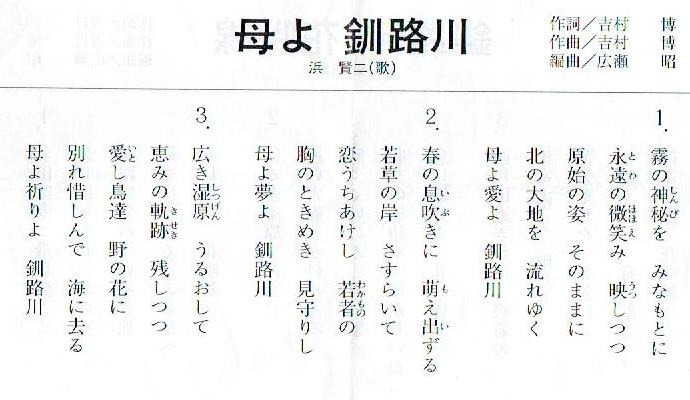 母よ 釧路川
浜 賢二(歌)
作詞/吉村 博
作曲/吉村 博
編曲/広瀬 昭
1.
霧の神秘を みなもとに
永遠の微笑み 映しつつ
原始の姿 そのままに
北の大地を 流れゆく
母よ愛よ 釧路川
2.
春の息吹きに 萌え出ずる
若草の岸 さすらいて
恋うちあけし 若者の
胸のときめき 見守りし
母よ夢よ 釧路川
3.
広き湿原 うるおして
恵みの軌跡 残しつつ
愛し鳥達 野の花に
別れ惜しんで 海に去る
母よ祈りよ 釧路川